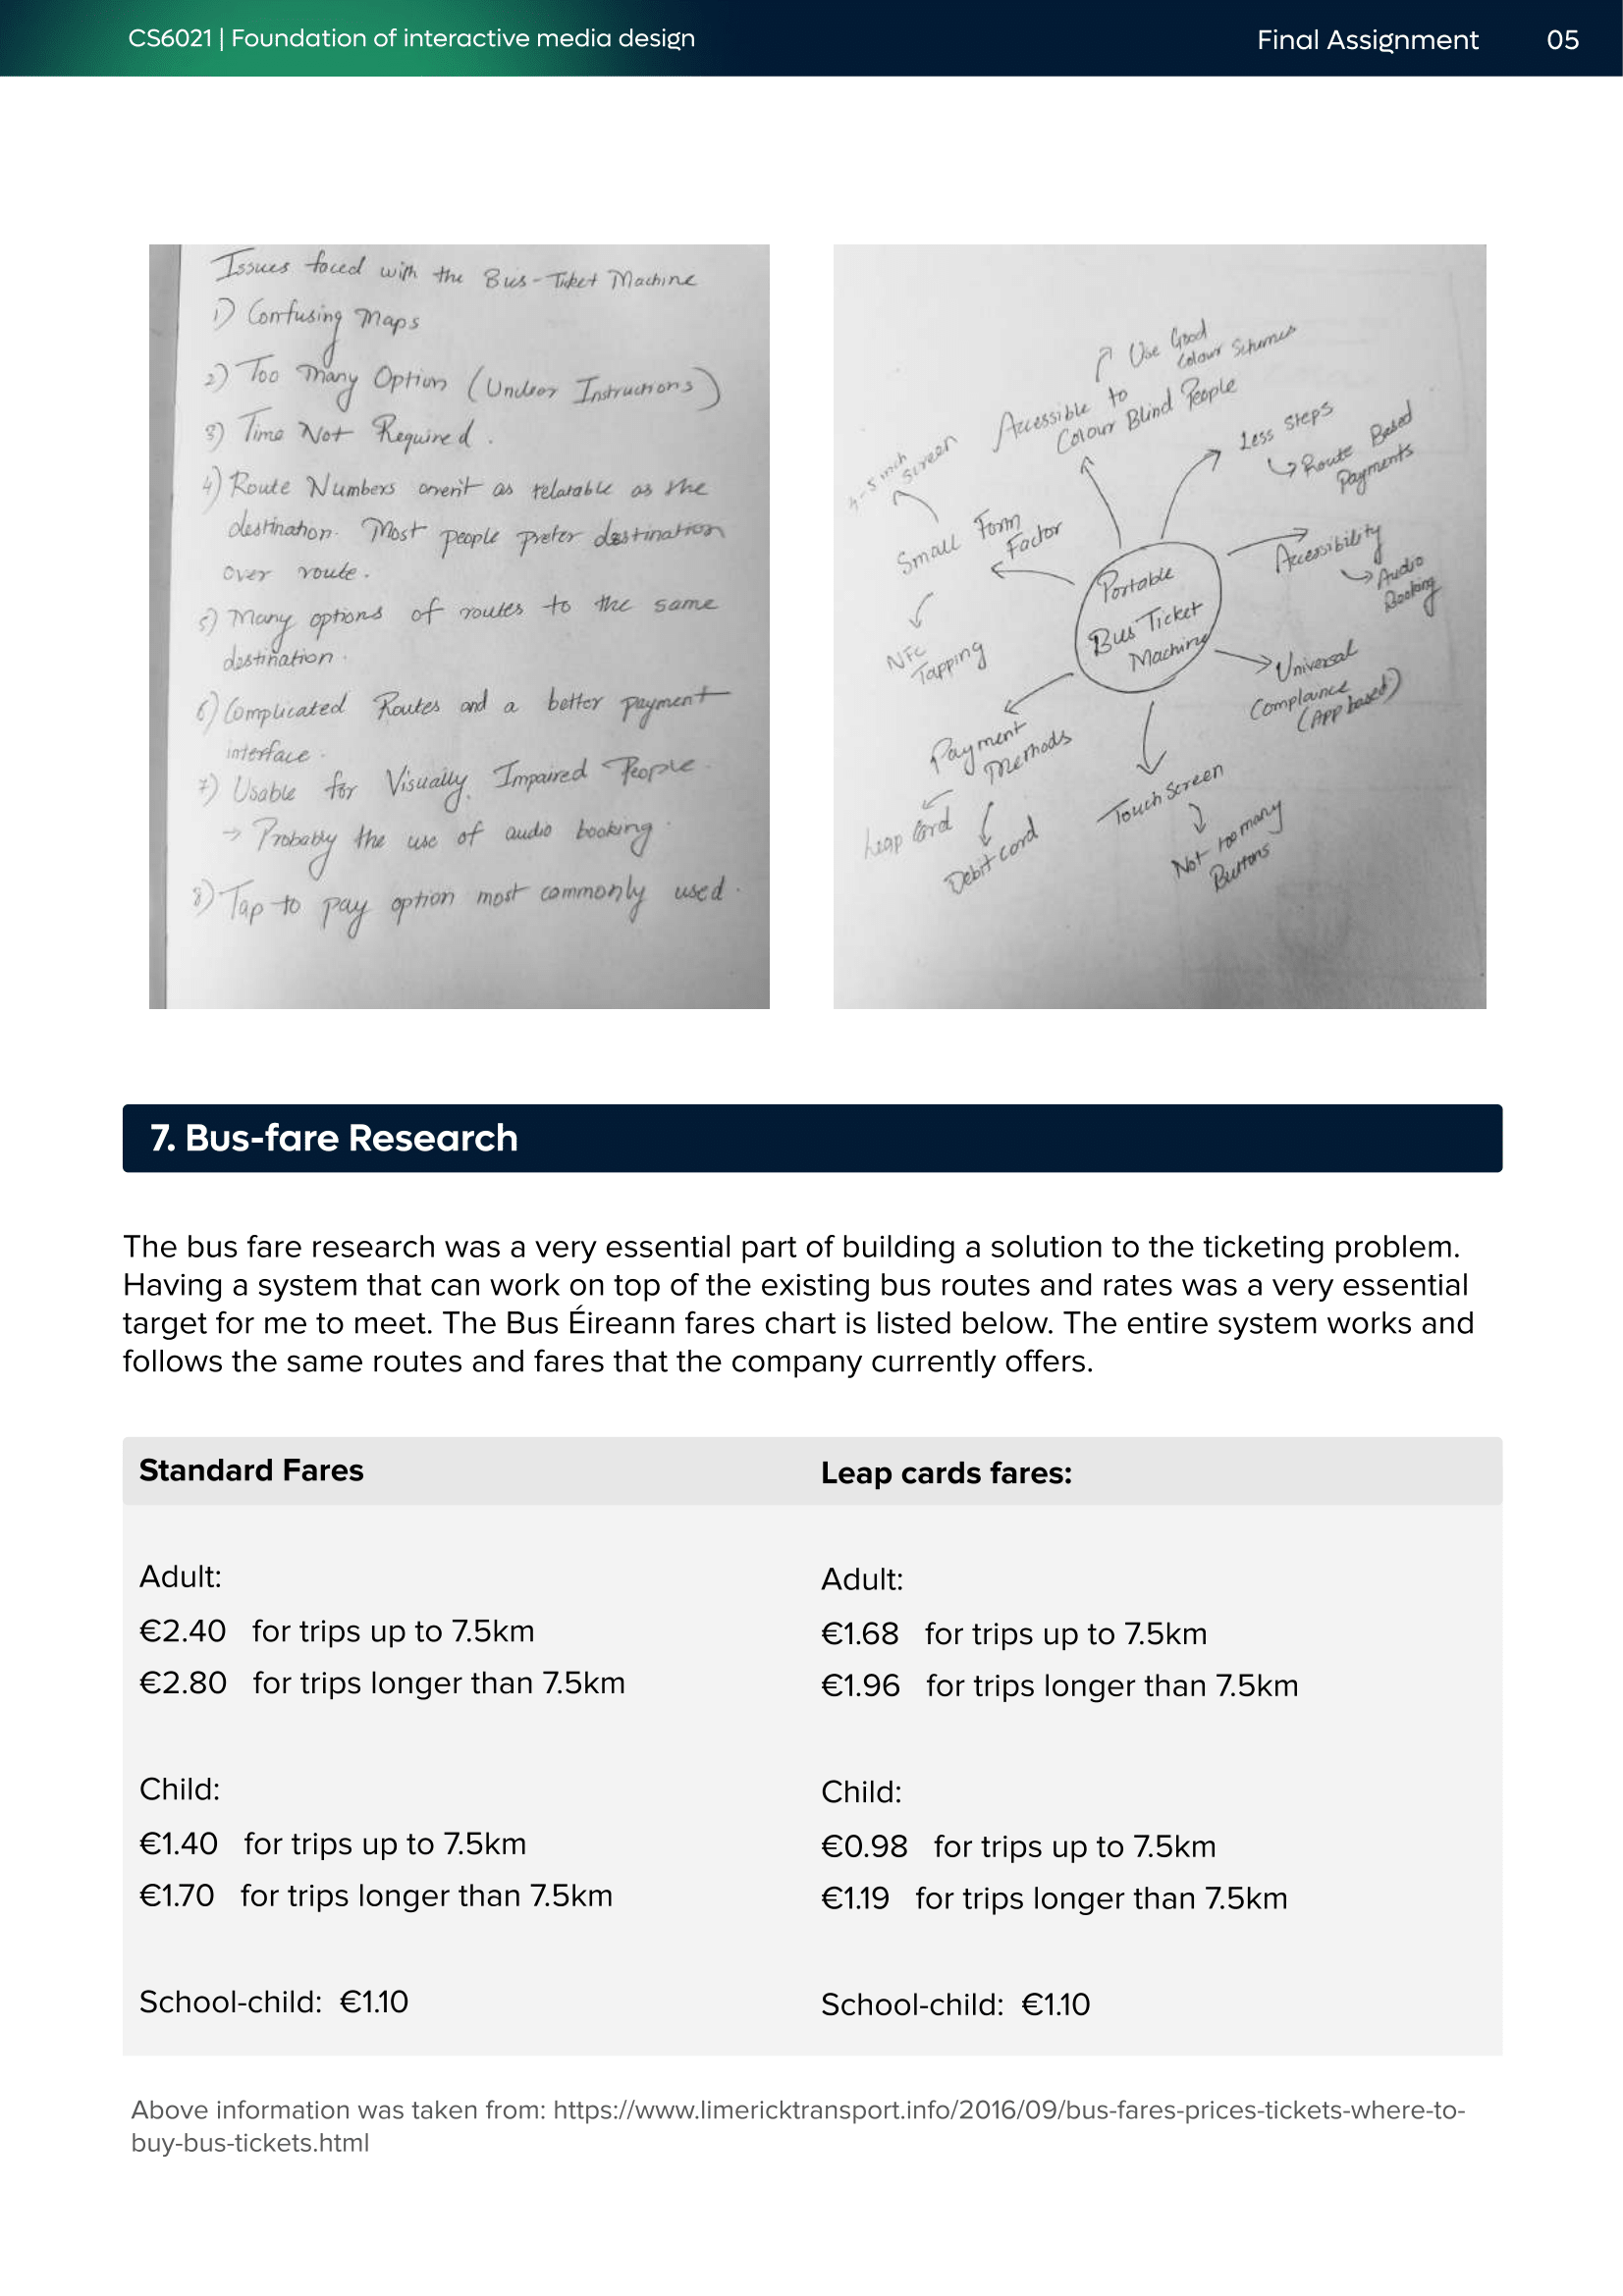 CS6021 | Foundation of interactive media design
Final Assignment 05
Issues faced with the Bus-Ticket Machine
1) Confusing Maps
2) Too Many Option (Unclear Instructions)
3) Time Not Required.
4) Route Numbers aren't as relatable as the
destination. Most people prefer destination
over route.
5) Many options of routes to the same
destination.
6) Complicated Routes and a better payment
interface.
7) Usable for Visually Impaired People.
→ Probably the use of audio booking.
8) Tap to pay option most commonly used.
Portable
Bus Ticket
Machine
Use Good
Colour Schemes
Accessible to
Colour Blind People
Less Steps
Route Based
Payments
Accessibility
Audio
Booking
Universal
Complaince
(App based)
Touch Screen
Not too many
Buttons
Payment
Methods
Leap Card
Debit Card
Small Form
Factor
4-5 inch
Screen
NFC
Tapping
7. Bus-fare Research
The bus fare research was a very essential part of building a solution to the ticketing problem.
Having a system that can work on top of the existing bus routes and rates was a very essential
target for me to meet. The Bus Éireann fares chart is listed below. The entire system works and
follows the same routes and fares that the company currently offers.
Standard Fares
Adult:
€2.40 for trips up to 7.5km
€2.80 for trips longer than 7.5km
Child:
€1.40 for trips up to 7.5km
€1.70 for trips longer than 7.5km
School-child: €1.10
Leap cards fares:
Adult:
€1.68 for trips up to 7.5km
€1.96 for trips longer than 7.5km
Child:
€0.98 for trips up to 7.5km
€1.19 for trips longer than 7.5km
School-child: €1.10
Above information was taken from: https://www.limericktransport.info/2016/09/bus-fares-prices-tickets-where-to-
buy-bus-tickets.html